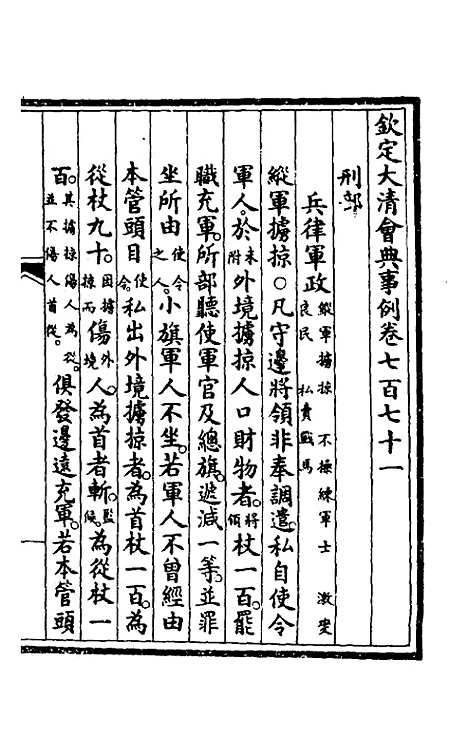 欽定大清會典事例卷七百七十一
刑部
兵律軍政縱軍擄掠 不操練軍士 激變良民 私賣戰馬
縱軍擄掠○凡守邊將領非奉調遣。私自使令
軍人。於未附外境擄掠人口財物者。將領杖一百。罷
職充軍。所部聽使軍官及總旗。遞減一等。並罪
坐所由使令之人。小旗軍人不坐。若軍人不曾經由
本管頭目使令。私出外境擄掠者。為首杖一百。為
從杖九十。因擄掠而傷外境人。為首者斬。監候。為從杖一
百。其擄掠傷人為從。並不傷人首從。俱發邊遠充軍。若本管頭